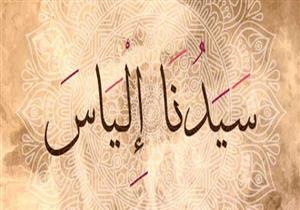 سَيِّدُنَا إِلْيَاسَ